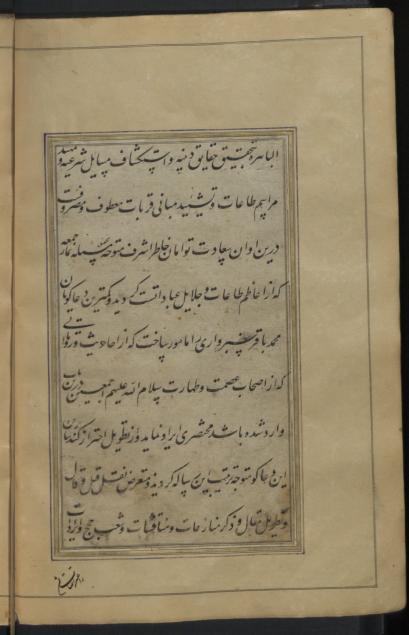 الباهره بتحقیق حقایق دینیه و استکشاف مسایل شرعیه و تمهید
مراسم طاعات و تشیید مبانی قربات معطوف و مصروفست
درین اوان سعادت توامان خاطر اشرف متوجه مسئله نماز جمعه
که از اعاظم طاعات و جلایل عبادات است گردید و کمترین دعاگویان
محمد باقر سبزواری را مامور ساخت که از احادیث و روایاتی
که از اصحاب عصمت و طهارت سلام الله علیهم اجمعین درین باب
وارد شده باشد مختصری ایراد نماید و از تطویل احتراز کند بنابرین
این دعاگو متوجه ترتیب این رساله گردید و متعرض نقل قیل و قال
و تطویل مقال و ذکر منازعات و مناقشات و شعب حجج و ایرادات